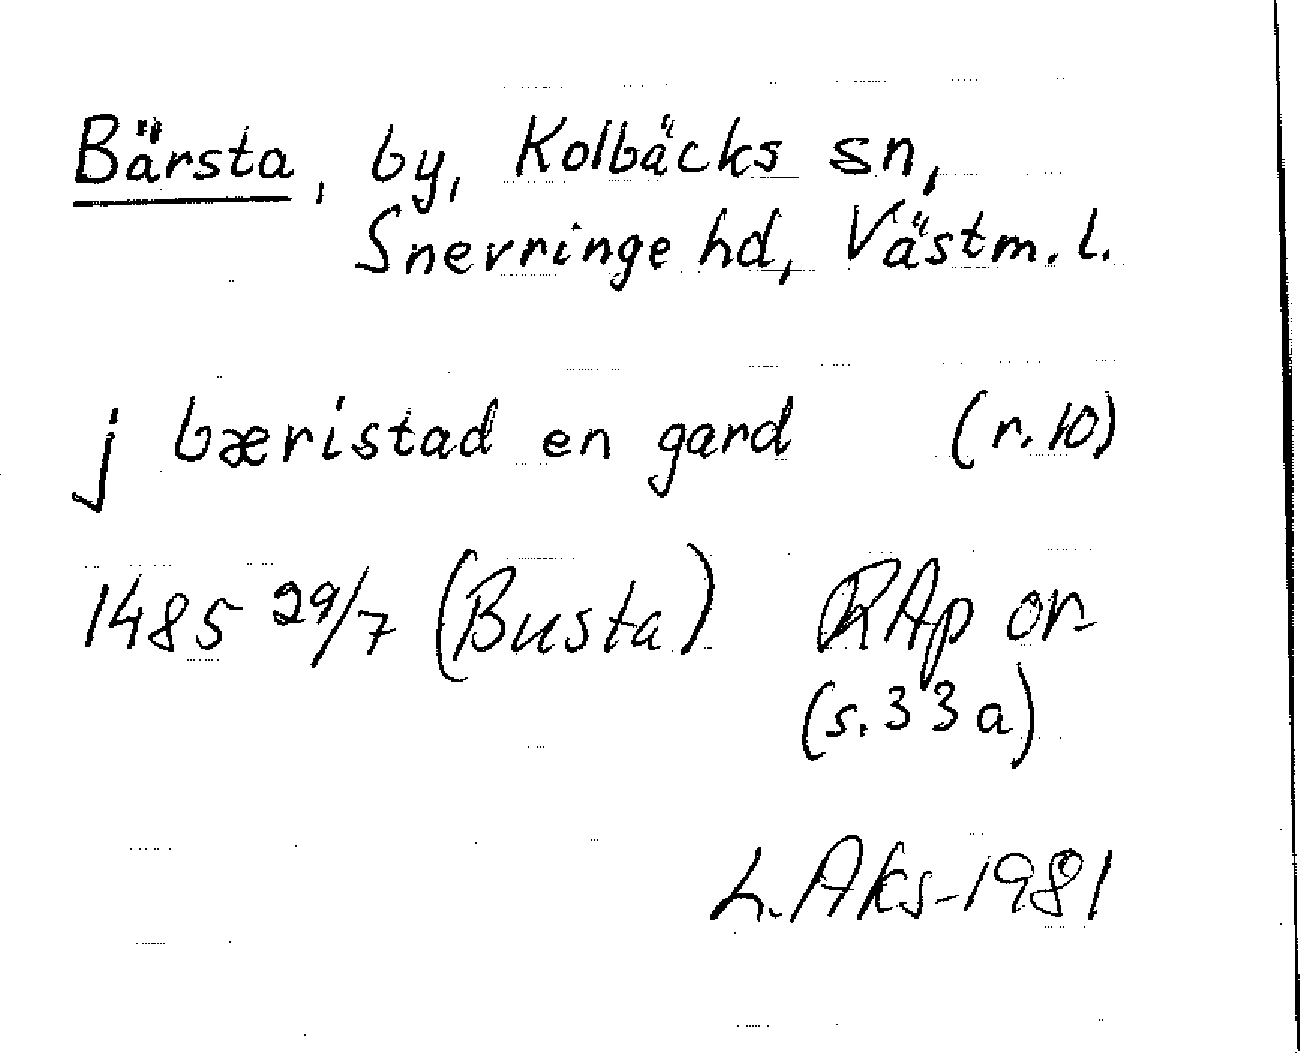 Bärsta, by, Kolbäcks sn,
Snevringe hd, Västm. l.
j bæristad en gard (r. 10)
1485 29/7 (Busta) RAp or
(s. 33a)
L. Aks-1981